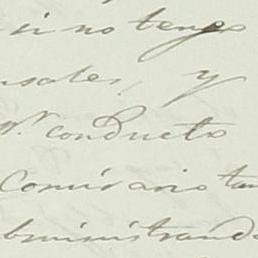 si no tengo
nsales, y
pr. conducto
Comisario tan
dministrando